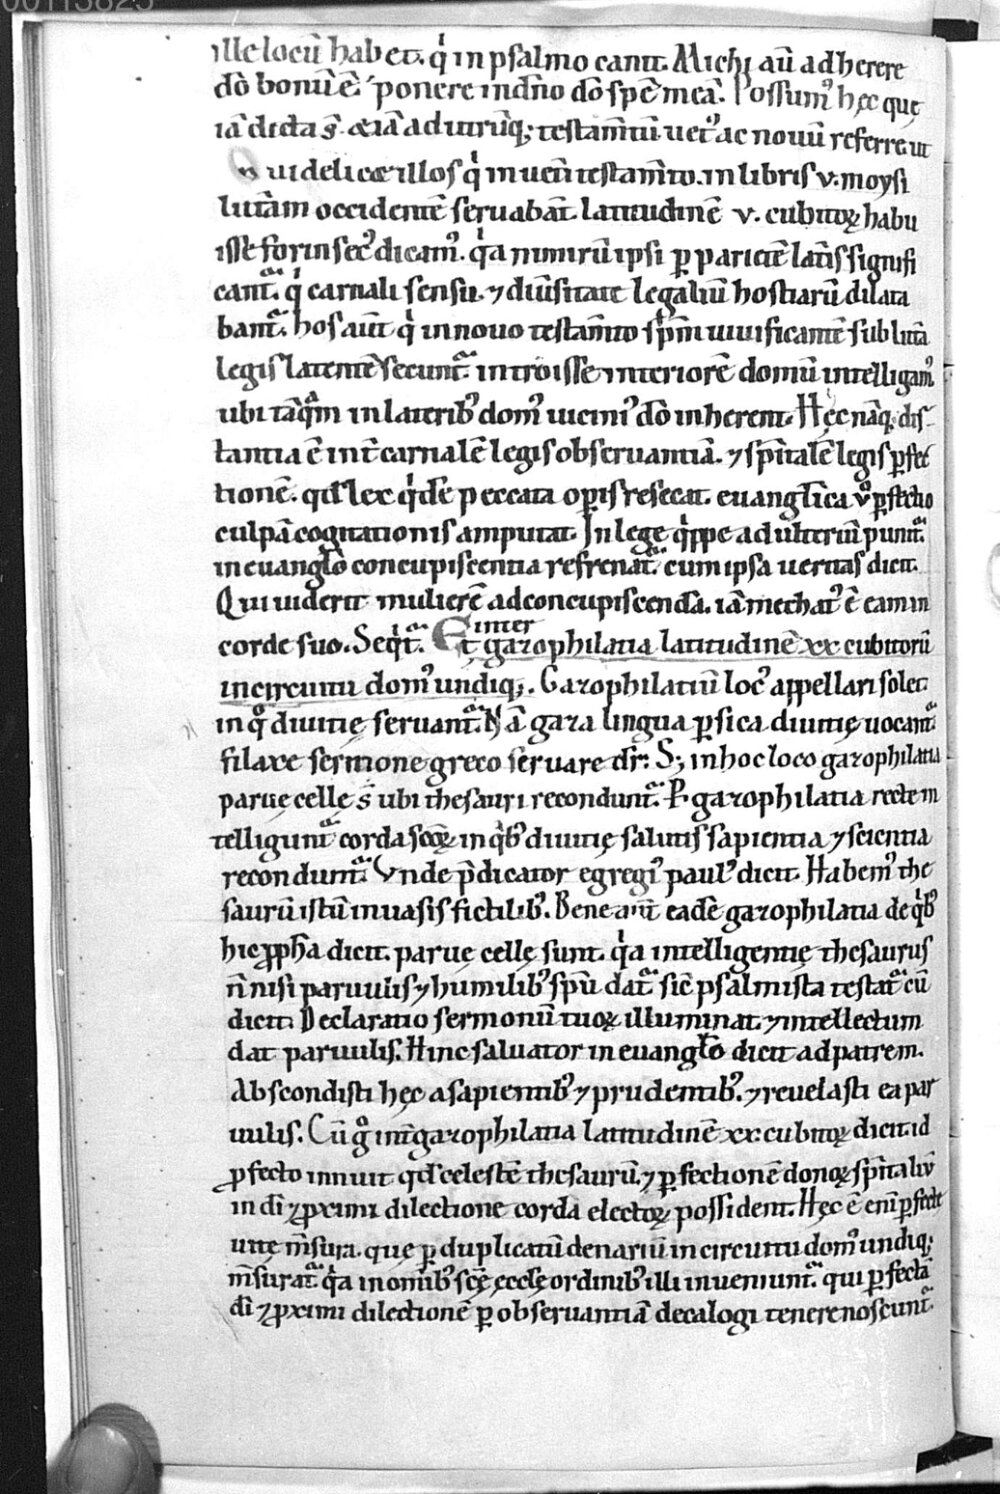 00113825
ille locū habet. qͥ in psalmo canit. Michi aū adherere
dō bonū ē. ponere in dn̄o dō spē meā. Possumꝰ hęc quę
iā dicta s̄. & iā ad utrūq; testam̄tū uetꝰ ac nouū referre ut
uidelicæ illos qͥ in uet̄i testam̄to. in libris v. moysi
lit̄am occidentē seruabāt. latitudinē v. cubitoꝝ habu
isse forinsecꝰ dicamꝰ. qͥa nimirū ipsi ꝑ parietē lat̄is signifi
cant᷑. qͥ carnali sensu. ⁊ diū̄sitate legaliū hostiarū dilata
bant᷑. hos aūt qͥ in nouo testam̄to sp̄m uiuificantē sub lit̄a
legis latentē secunt᷑ introisse interiorē domū intelligamꝰ
ubi tāqͣm in lateribꝰ domꝰ uicini dō inherent. Hęc nāq; dis-
tantia ē int̄ carnalē legis obseruantiā. ⁊ sp̄italē legis ꝑfec
tionē. qd̄ lex qͥdē peccata opis resecat. euanglica vͦ ꝑfectio
culpā cogitationis amputat. In lege qͥppe adulteriū punit᷑.
in euangl̄o concupiscentia refrenat᷑. cum ipsa ueritas dicit.
Qui uiderit mulierē ad concupiscendā. iā mechatꝰ ē eam in
corde suo. Seqͥt᷑. Et inter gazophilatia latitudinē xx cubitorū
in circuitu domꝰ undiq;. Gazophilatiū locꝰ appellari solet
in qͦ diuitię seruant᷑. Nā gaza lingua ꝑsica diuitię uocant᷑
filaxe sermone greco seruare dr̄. S; in hoc loco gazophilatia
paruę cellę s̄ ubi thesauri recondunt᷑. P gazophilatia recte in
telligunt᷑ corda sc̄oꝝ in qͥbꝰ diuitię salutis sapientia ⁊ scientia
recondunt᷑. Vnde p̄dicator egregiꝰ paulꝰ dicit. Habemꝰ the
saurū istū in uasis fictilibꝰ. Bene aūt eadē gazophilatia de qͥbꝰ
hic ꝓph̄a dicit. paruę cellę sunt. qͥa intelligentię thesaurus
n̄ nisi paruulis ⁊ humilibꝰ spū dat᷑ sic̄ psalmista testat᷑ cū
dicit. Declaratio sermonū tuoꝝ illuminat ⁊ intellectum
dat paruulis. Hinc saluator in euangl̄o dicit ad patrem.
Abscondisti hęc a sapientibꝰ ⁊ prudentibꝰ. ⁊ reuelasti ea par
uulis. Cū gͦ int̄ gazophilatia latitudinē xx. cubitoꝝ dicit id
ꝑfecto innuit qd̄ celestē thesaurū. ⁊ ꝑfectionē donoꝝ sp̄italiū
in dī ⁊ ꝓximi dilectione corda electoꝝ possident. Hęc ē eni ꝑfecte
uitę m̄sura. quę ꝑ duplicatū denariū in circuitu domꝰ undiq;
m̄surat᷑. qͥa in omībꝰ scę̄ eccl̄ę ordinibꝰ illi inueniunt᷑. qui ꝑfectā
dī ⁊ ꝓximi dilectionē ꝑ obseruantiā decalogi tenere noscunt᷑.